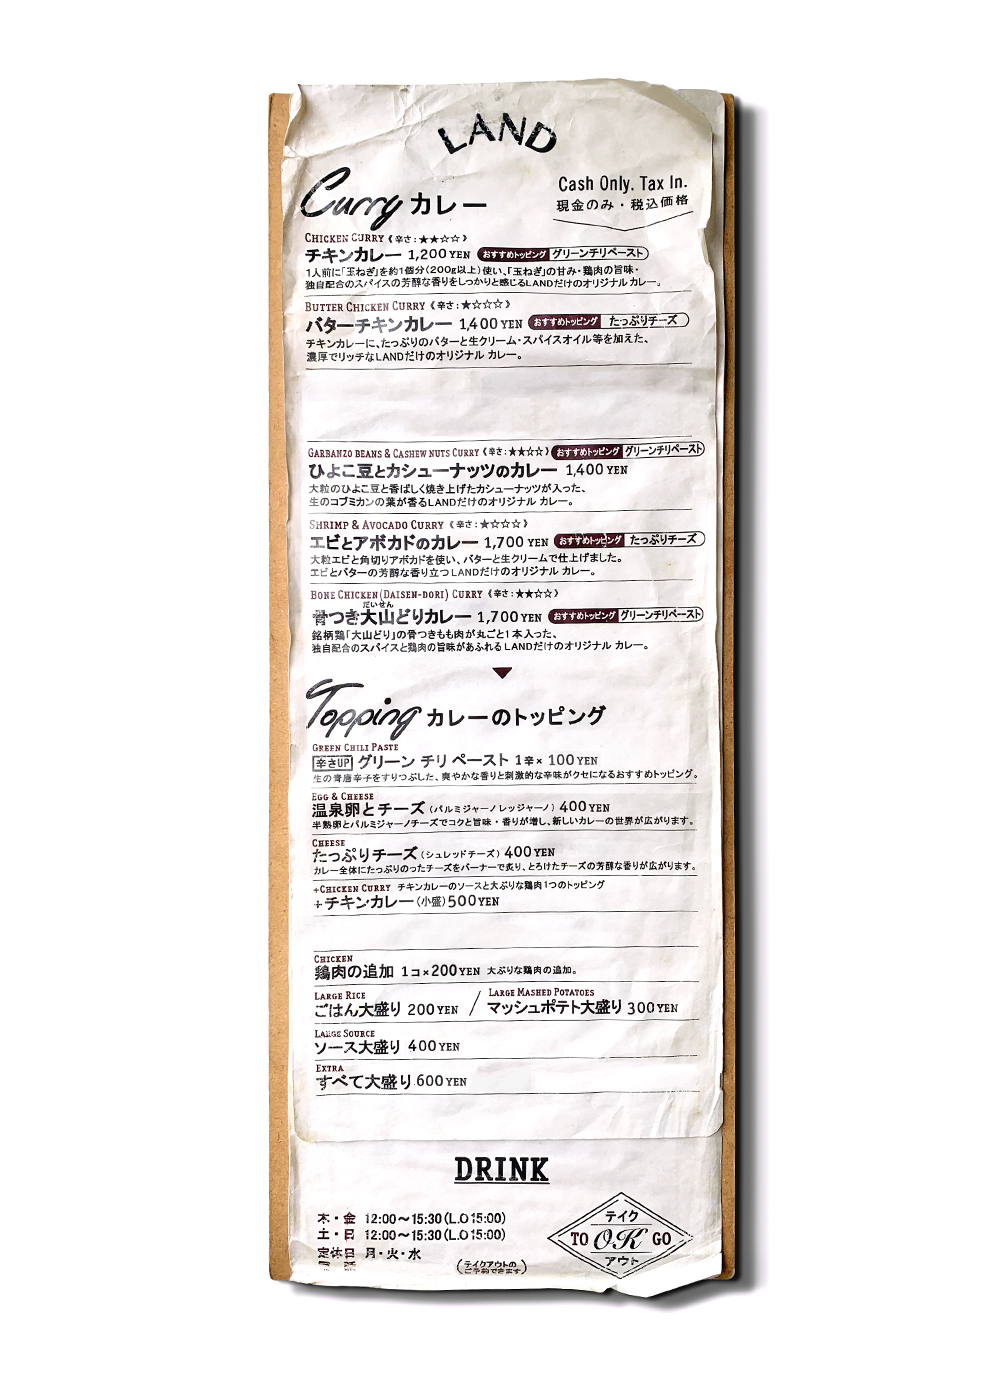 LAND
Curry カレー
Cash Only. Tax In.
現金のみ・税込価格
CHICKEN CURRY《辛さ:★★☆☆》
チキンカレー 1,200 YEN おすすめトッピング グリーンチリペースト
1人前に「玉ねぎ」を約1個分(200g以上)使い、「玉ねぎ」の甘み・鶏肉の旨味・
独自配合のスパイスの芳醇な香りをしっかりと感じるLANDだけのオリジナル カレー。
BUTTER CHICKEN CURRY《辛さ:★☆☆☆》
バターチキンカレー 1,400 YEN おすすめトッピング たっぷりチーズ
チキンカレーに、たっぷりのバターと生クリーム・スパイスオイル等を加えた、
濃厚でリッチなLANDだけのオリジナル カレー。
GARBANZO BEANS & CASHEW NUTS CURRY《辛さ:★★☆☆》 おすすめトッピング グリーンチリペースト
ひよこ豆とカシューナッツのカレー 1,400 YEN
大粒のひよこ豆と香ばしく焼き上げたカシューナッツが入った、
生のコブミカンの葉が香るLANDだけのオリジナル カレー。
SHRIMP & AVOCADO CURRY《辛さ:★☆☆☆》
エビとアボカドのカレー 1,700 YEN おすすめトッピング たっぷりチーズ
大粒エビと角切りアボカドを使い、バターと生クリームで仕上げました。
エビとバターの芳醇な香り立つLANDだけのオリジナル カレー。
BONE CHICKEN(DAISEN-DORI) CURRY《辛さ:★★☆☆》
だいせん
骨つき大山どりカレー 1,700 YEN おすすめトッピング グリーンチリペースト
銘柄鶏「大山どり」の骨つきもも肉が丸ごと1本入った、
独自配合のスパイスと鶏肉の旨味があふれるLANDだけのオリジナル カレー。
Topping カレーのトッピング
GREEN CHILI PASTE
辛さUP グリーン チリ ペースト 1辛× 100 YEN
生の青唐辛子をすりつぶした、爽やかな香りと刺激的な辛味がクセになるおすすめトッピング。
EGG & CHEESE
温泉卵とチーズ(パルミジャーノレッジャーノ) 400 YEN
半熟卵とパルミジャーノチーズでコクと旨味・香りが増し、新しいカレーの世界が広がります。
CHEESE
たっぷりチーズ(シュレッドチーズ) 400 YEN
カレー全体にたっぷりのったチーズをバーナーで炙り、とろけたチーズの芳醇な香りが広がります。
+CHICKEN CURRY チキンカレーのソースと大ぶりな鶏肉1つのトッピング
+チキンカレー(小盛)500 YEN
CHICKEN
鶏肉の追加 1コ×200 YEN 大ぶりな鶏肉の追加。
LARGE RICE
ごはん大盛り 200 YEN / LARGE MASHED POTATOES マッシュポテト大盛り 300 YEN
LARGE SOURCE
ソース大盛り 400 YEN
EXTRA
すべて大盛り 600 YEN
DRINK
木・金 12:00〜15:30(L.O 15:00)
土・日 12:00〜15:30(L.O 15:00)
定休日 月・火・水
(テイクアウトの
ご予約できます)
テイク
TO OK GO
アウト